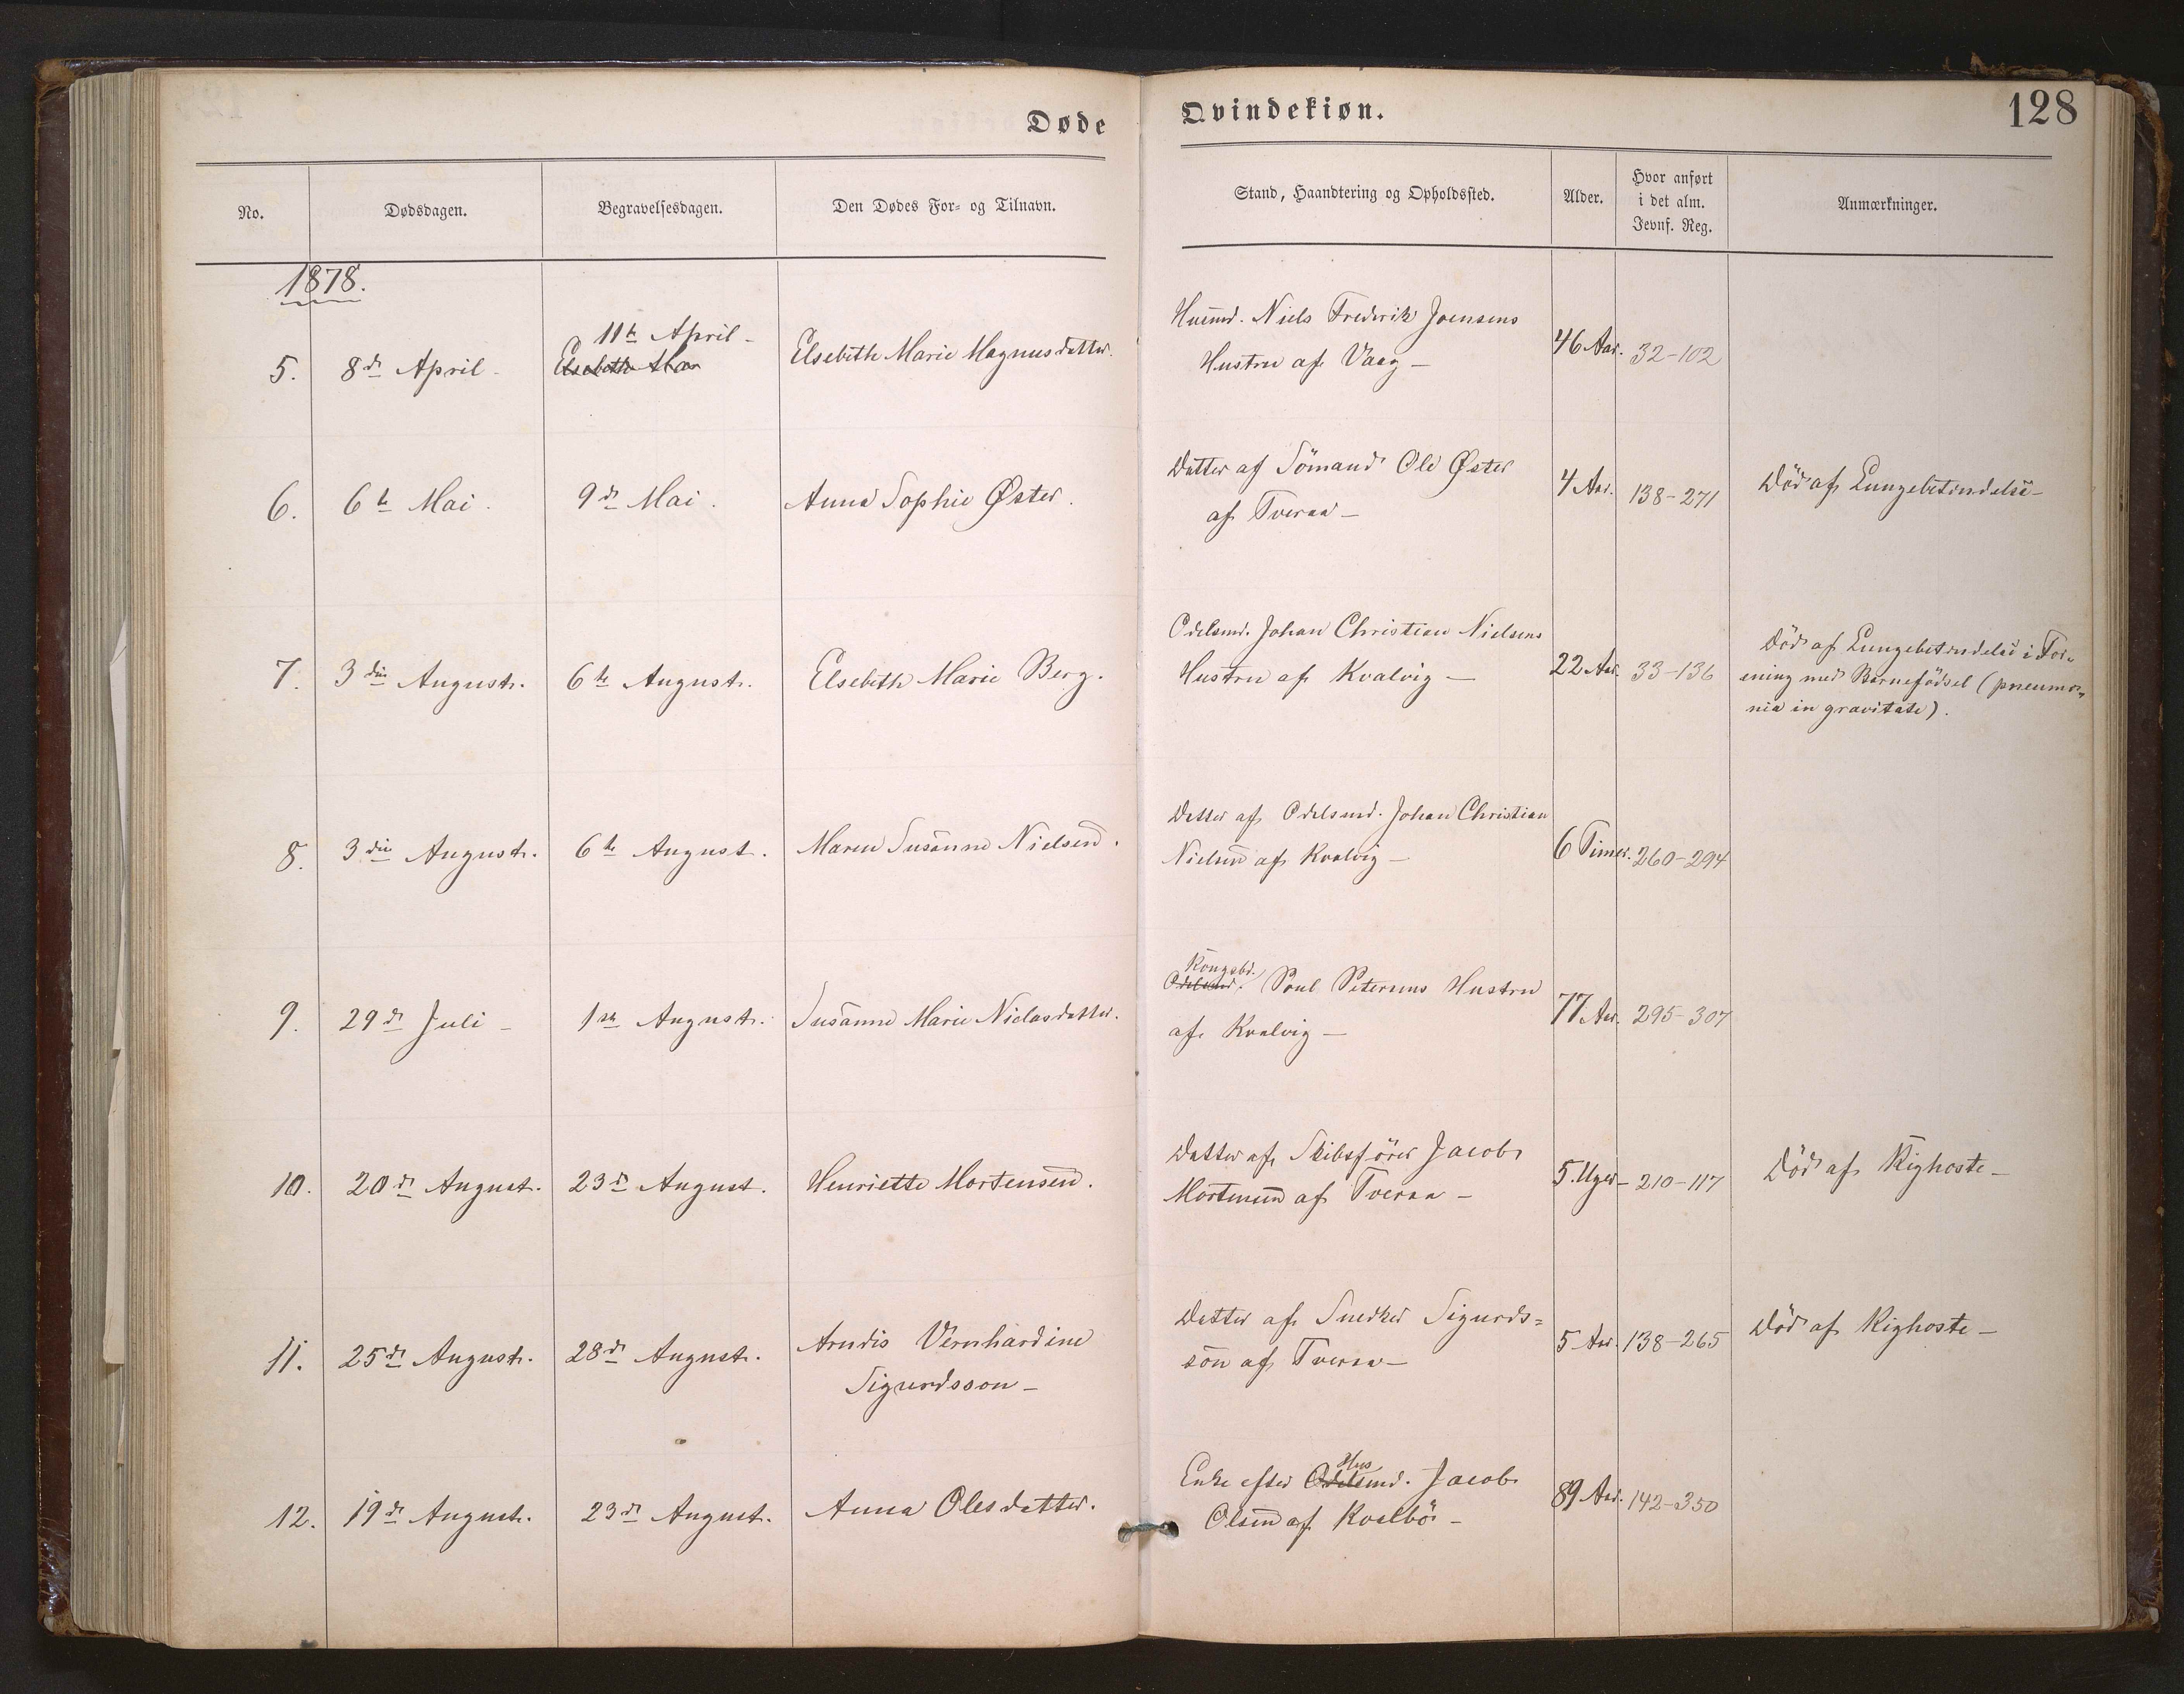 Døde Qvindekiøn. 128
No. Dødsdagen. Begravelsesdagen. Den Dødes For- og Tilnavn. Stand, Haandtering og Opholdssted. Alder. Hvor anført i det alm. Jevnf. Reg. Anmærkninger.
1878.
11te April -
5. 8de April - Elsebeth Mar Elsebeth Marie Magnusdatter.
Huusmd. Niels Frederik Joensens
Hustru af Vaag - 46 Aar. 32-102
6. 6te Mai. 9de Mai. Anna Sophie Øster.
Datter af Sömand Ole Øster
af Tveraa - 4 Aar. 138-271 Död af Lungebetendelse -
7. 3die August. 6te August. Elsebeth Marie Berg.
Odelsmd. Johan Christian Nielsens
Hustru af Kvalvig - 22 Aar. 33-136
Död af Lungebetendelse i For-
ening med Barnefödsel (pneumo-
nia in gravitate).
8. 3die August. 6te August. Maren Susanne Nielsen.
Datter af Odelsmd. Johan Christian
Nielsen af Kvalvig - 6 Timer. 260-294
9. 29de Juli - 1ste August. Susanne Marie Niclasdatter.
Kongsbd.
Odelsmd. Poul Petersens Hustru
af Kvalvig - 77 Aar. 295-307
10. 20de August. 23de August. Henriette Mortensen.
Datter af Skibsförer Jacob
Mortensen af Tveraa - 5 Uger - 210-117 Död af Kighoste -
11. 25de August. 28de August. Arndis Vernhardine
Sigurdsson -
Datter af Snedker Sigurds=
sön af Tveraa - 5 Aar. 138-265 Död af Kighoste -
12. 19de August. 23de August. Anna Olesdatter.
Hus
Enke efter Odelsmd. Jacob
Olsen af Kvalbö - 89 Aar. 142-350